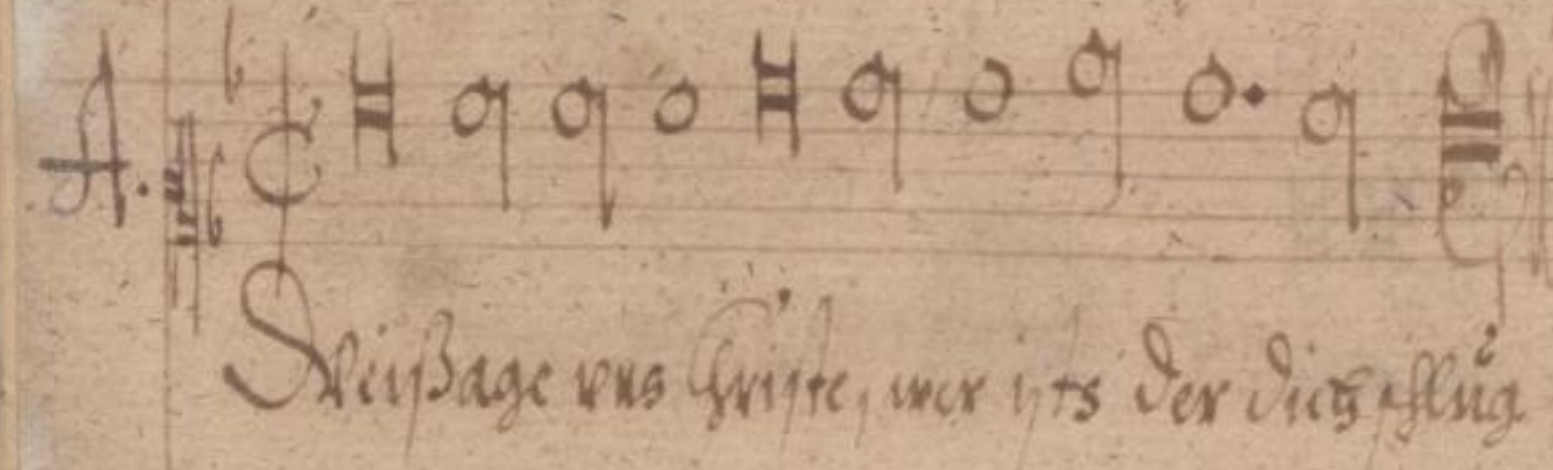 A.
Weissage vns Christe, wer ists der dich schlug